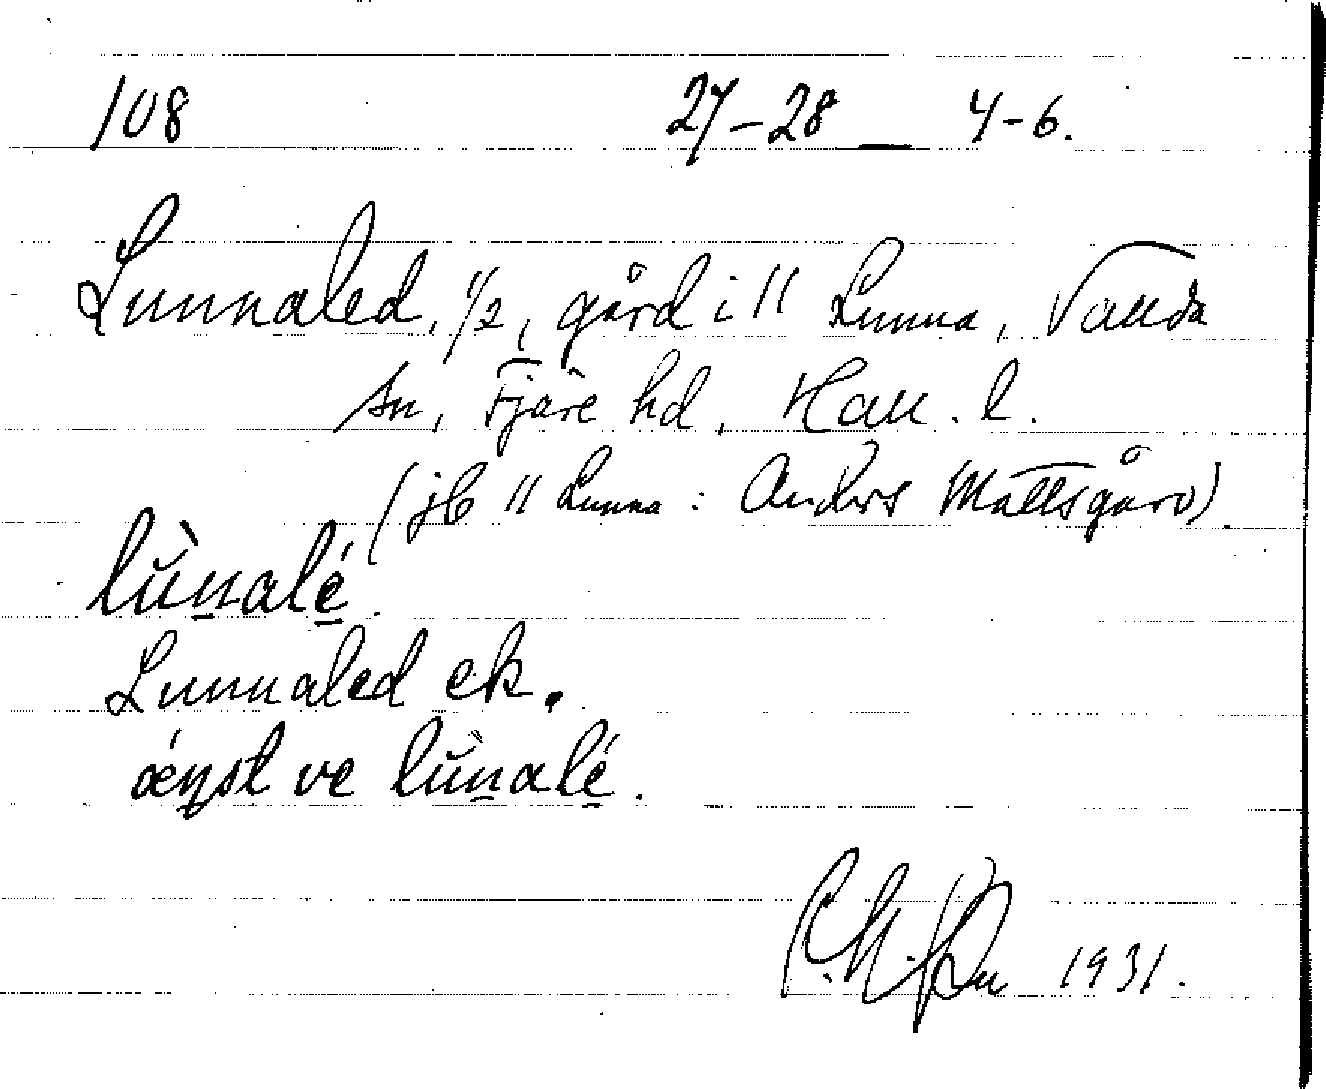 108 27–28 — 4–6.
Lunnaled, 1/2, gård i 11 Lunna, Vallda
sn, Fjäre hd, Hall. l.
(jb 11 Lunna: Anders Mattsgård).
lùnalé.
Lunnaled ek.
ve lùnalé.
1931.